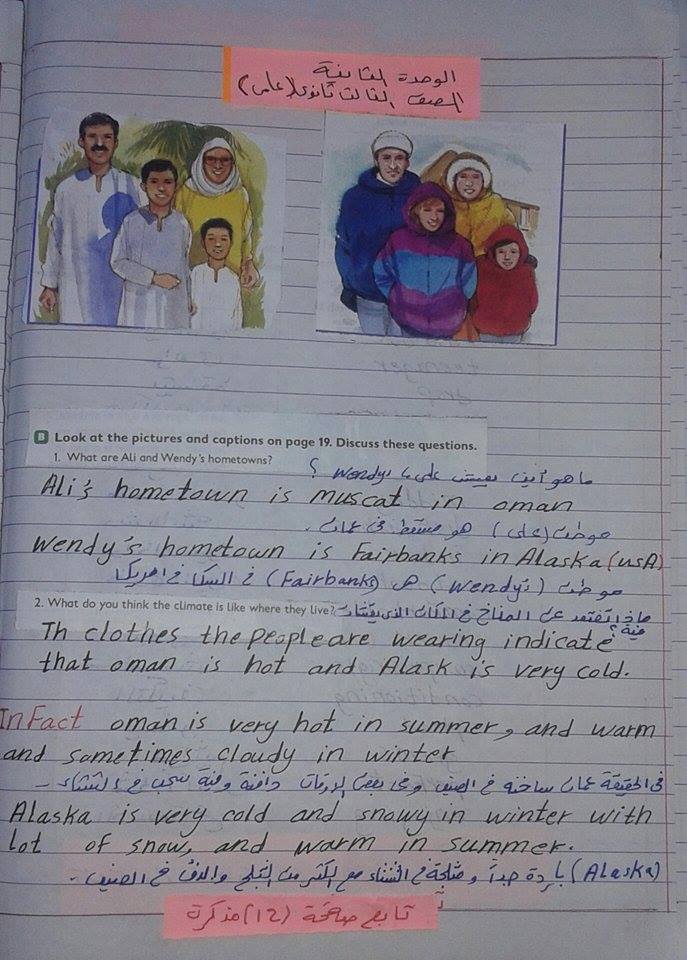 الوحدة الثانية
الصف الثالث ثانوي (علمي)
B Look at the pictures and captions on page 19. Discuss these questions.
1. What are Ali and Wendy's hometowns?
ما هو أين يعيش علي و Wendy's ؟
Ali's hometown is muscat in oman
موطن (علي) هو مسقط في عمان .
wendy's hometown is Fairbanks in Alaska (usA)
موطن (wendy's) هل (Fairbanks) في السكا في امريكا
2. What do you think the climate is like where they live?
ماذا تعتقد عن المناخ في المكان الذي يعيشان
فية ؟
Th clothes the people are wearing indicate
that oman is hot and Alask is very cold.
In Fact oman is very hot in summer, and warm
and sometimes cloudy in winter
في الحقيقة عمان ساخنه في الصيف وفي بعض الاوقات دافئة وفية سحب في الشتاء .
Alaska is very cold and snowy in winter with
lot of snow, and warm in summer.
(Alaska) باردة جداً و مثلجة في الشتاء مع الكثير من الثلج والدفئ في الصيف .
تابع صفحة (12) مذكرة